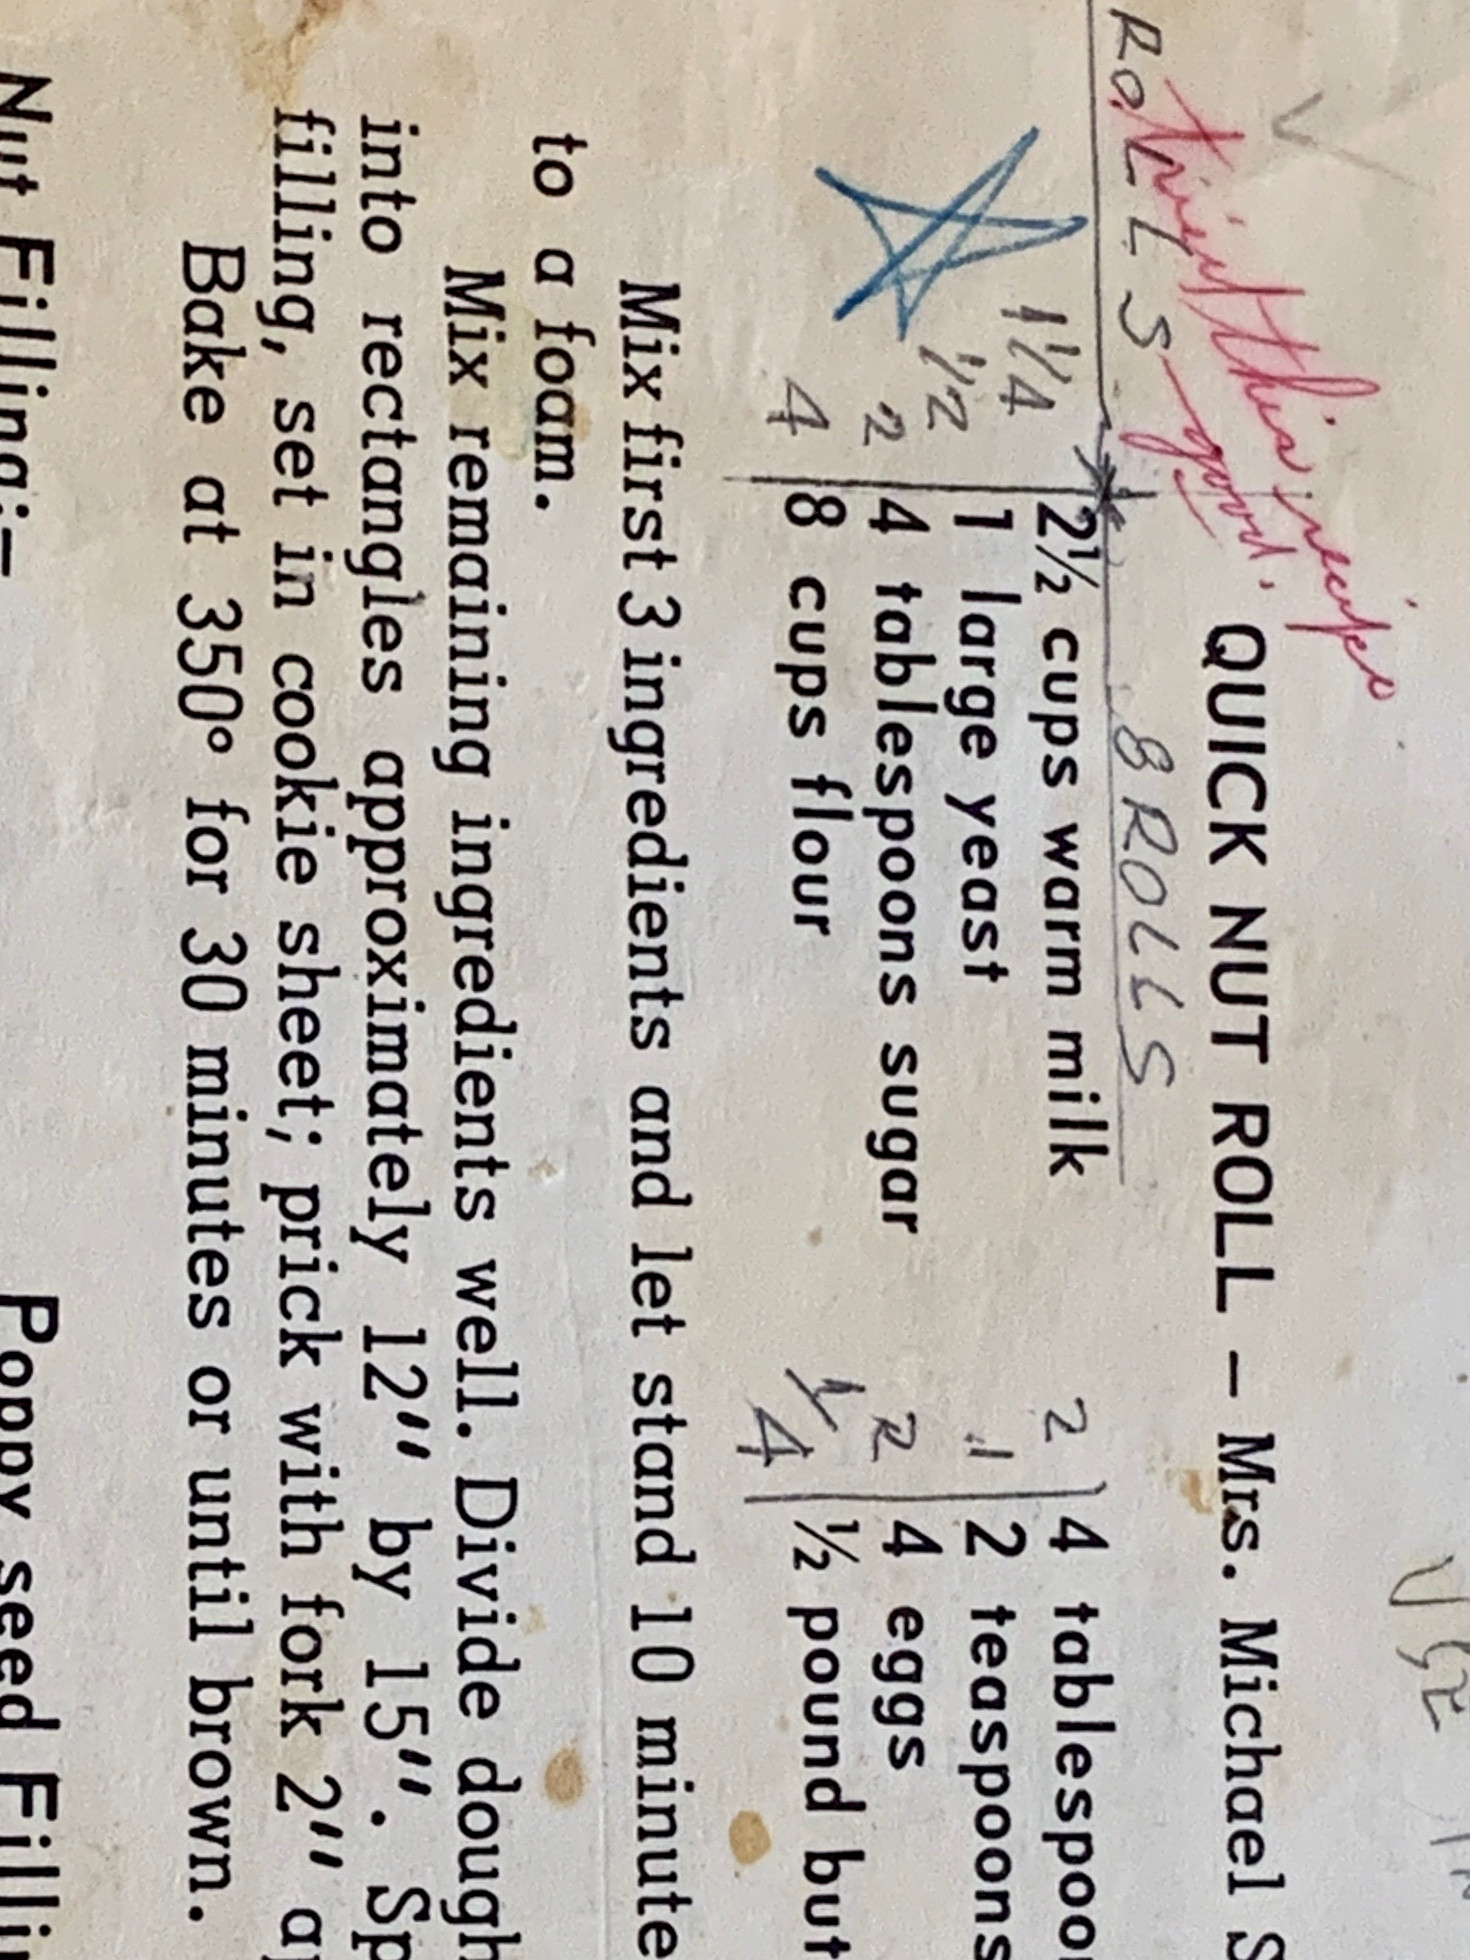 tried this recipe
good.
QUICK NUT ROLL – Mrs. Michael S
ROLLS 8 ROLLS
1 1/4 2½ cups warm milk 2 4 tablespoo
1/2 1 large yeast 1 2 teaspoons
2 4 tablespoons sugar 2 4 eggs
4 8 cups flour 1/4 ½ pound but
Mix first 3 ingredients and let stand 10 minute
to a foam.
Mix remaining ingredients well. Divide dough
into rectangles approximately 12" by 15". Sp
filling, set in cookie sheet; prick with fork 2" ap
Bake at 350° for 30 minutes or until brown.
Nut Filling:– Poppy seed Filli